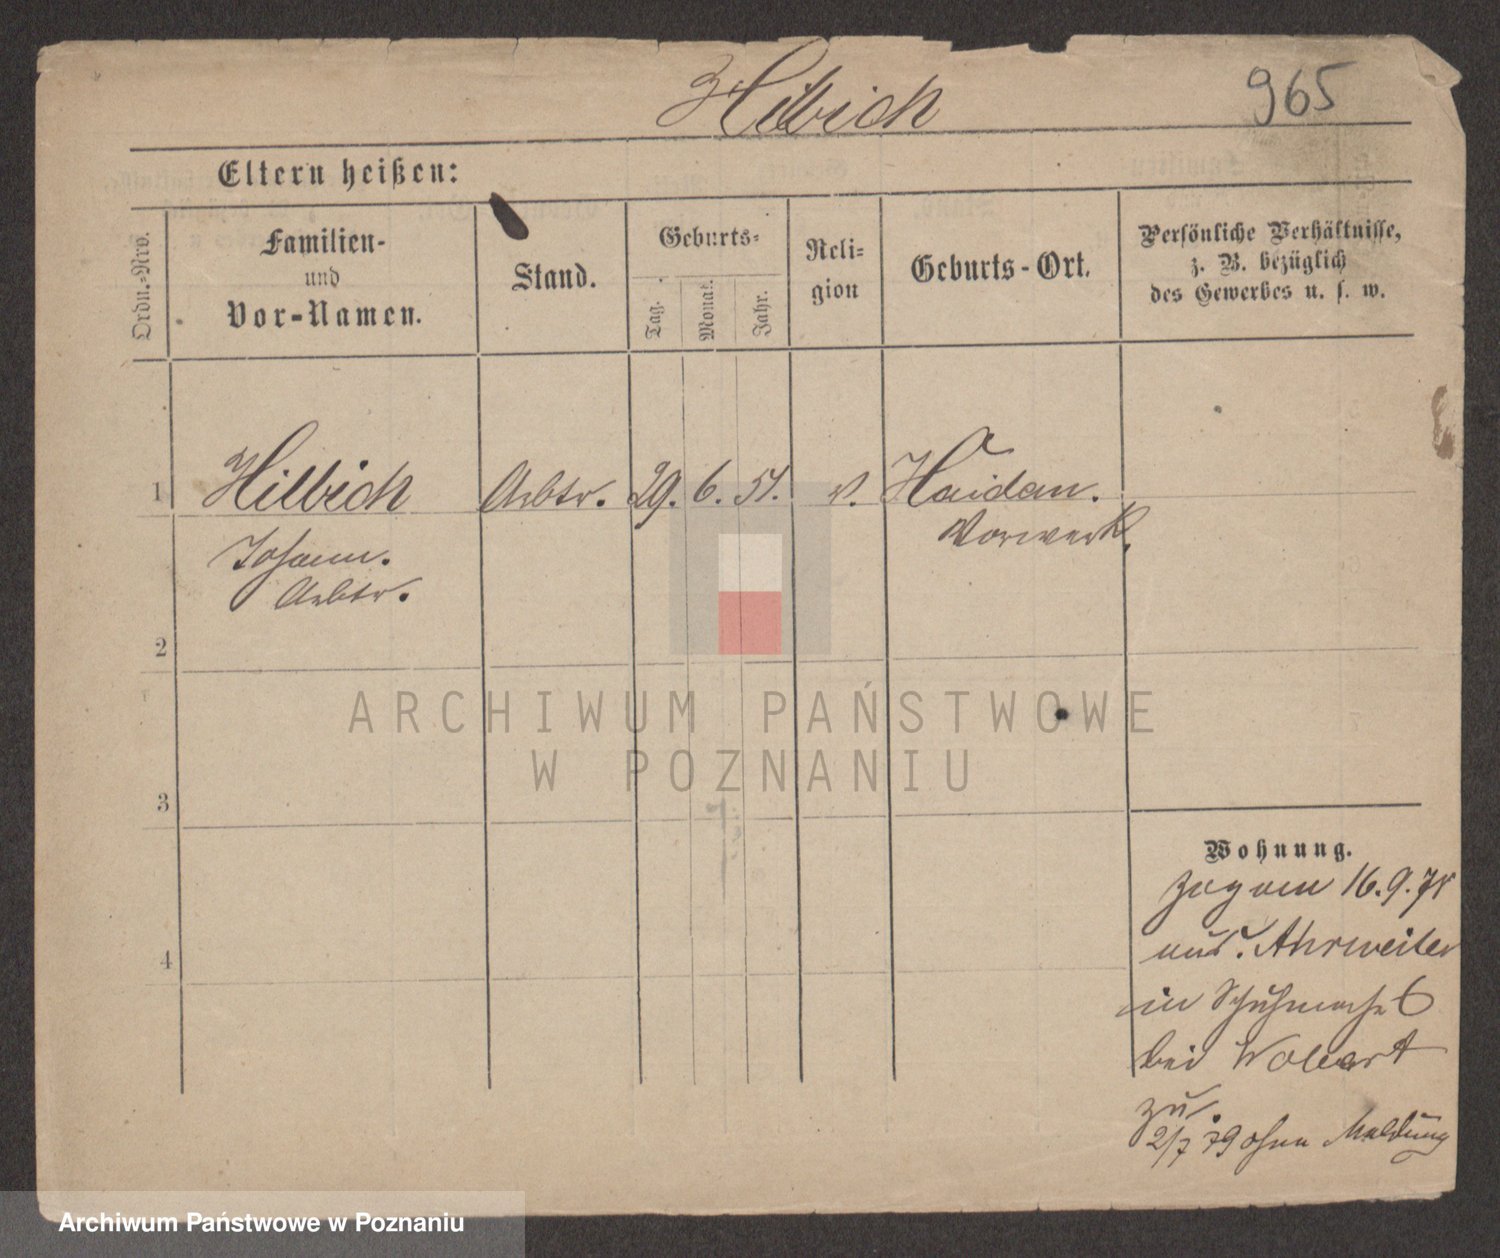 Hilbich
965
Eltern heißen:
Ordn.-Nro.
Familien-
und
Vor-Namen.
Stand.
Geburts-
Tag.
Monat.
Jahr.
Reli-
gion
Geburts-Ort.
Persönliche Verhältnisse,
z. B. bezüglich
des Gewerbes u. s. w.
1 Hilbich Arbtr. 29. 6. 51. Haidau.
Vorwerk.
Johann.
Arbtr.
2
3
4
Wohnung.
Zog am 16.9.78
aus. Ahrweiler
in Schuhmachr 6
bei
zu.
2/7 79 ohne Meldung
ARCHIWUM PAŃSTWOWE
W POZNANIU
Archiwum Państwowe w Poznaniu